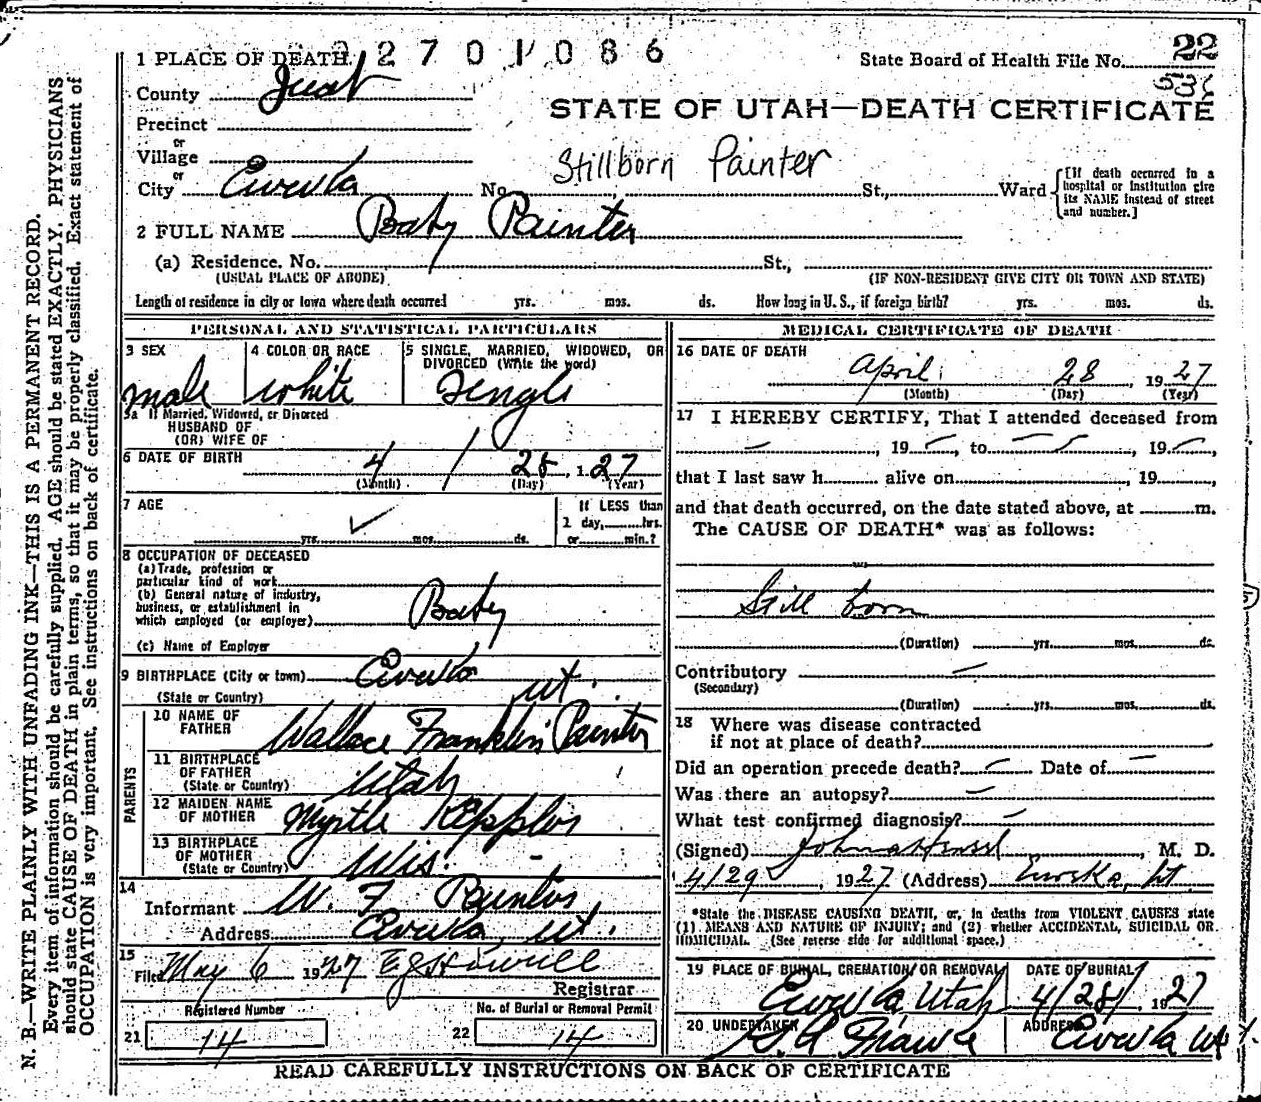 1 PLACE OF DEATH 2701086
State Board of Health File No. 22
County Juab
STATE OF UTAH—DEATH CERTIFICATE
Precinct
or
Village
Stillborn Painter
or
City Eureka No. St., Ward
[If death occurred in a hospital or institution give its NAME instead of street and number.]
2 FULL NAME Baby Painter
(a) Residence. No. St.,
(USUAL PLACE OF ABODE) (IF NON-RESIDENT GIVE CITY OR TOWN AND STATE)
Length of residence in city or town where death occurred yrs. mos. ds. How long in U. S., if foreign birth? yrs. mos. ds.
PERSONAL AND STATISTICAL PARTICULARS
3 SEX
male
4 COLOR OR RACE
white
5 SINGLE, MARRIED, WIDOWED, OR
DIVORCED (Write the word)
Single
5a If Married, Widowed, or Divorced
HUSBAND OF
(OR) WIFE OF
6 DATE OF BIRTH 4 / 28, 1927
(Month) (Day) (Year)
7 AGE
yrs. mos. ds.
If LESS than
1 day, hrs.
or min.?
8 OCCUPATION OF DECEASED
(a) Trade, profession or
particular kind of work
(b) General nature of industry,
business, or establishment in
which employed (or employer) Baby
(c) Name of Employer
9 BIRTHPLACE (City or town) Eureka
(State or Country) Ut.
PARENTS
10 NAME OF
FATHER Wallace Franklin Painter
11 BIRTHPLACE
OF FATHER
(State or Country) Utah
12 MAIDEN NAME
OF MOTHER Myrtle
13 BIRTHPLACE
OF MOTHER
(State or Country) Wis.
14
Informant W. F. Painter
Address Eureka, Ut.
15
Filed May 6 1927
Registrar
Registered Number
21 14
No. of Burial or Removal Permit
22 14
MEDICAL CERTIFICATE OF DEATH
16 DATE OF DEATH
April 28, 1927
(Month) (Day) (Year)
17 I HEREBY CERTIFY, That I attended deceased from
, 19 , to , 19 ,
that I last saw h alive on , 19 ,
and that death occurred, on the date stated above, at m.
The CAUSE OF DEATH* was as follows:
Still born
(Duration) yrs. mos. ds.
Contributory
(Secondary)
(Duration) yrs. mos. ds.
18 Where was disease contracted
if not at place of death?
Did an operation precede death? Date of
Was there an autopsy?
What test confirmed diagnosis?
(Signed) , M. D.
4/29, 1927 (Address) Eureka, Ut.
*State the DISEASE CAUSING DEATH, or, in deaths from VIOLENT CAUSES state
(1) MEANS AND NATURE OF INJURY; and (2) whether ACCIDENTAL, SUICIDAL OR
HOMICIDAL. (See reverse side for additional space.)
19 PLACE OF BURIAL, CREMATION OR REMOVAL
Eureka Utah
DATE OF BURIAL
4/28/ 1927
20 UNDERTAKER
ADDRESS
Eureka Ut.
READ CAREFULLY INSTRUCTIONS ON BACK OF CERTIFICATE
N. B.—WRITE PLAINLY WITH UNFADING INK—THIS IS A PERMANENT RECORD.
Every item of information should be carefully supplied. AGE should be stated EXACTLY. PHYSICIANS
should state CAUSE OF DEATH in plain terms, so that it may be properly classified. Exact statement of
OCCUPATION is very important. See instructions on back of certificate.